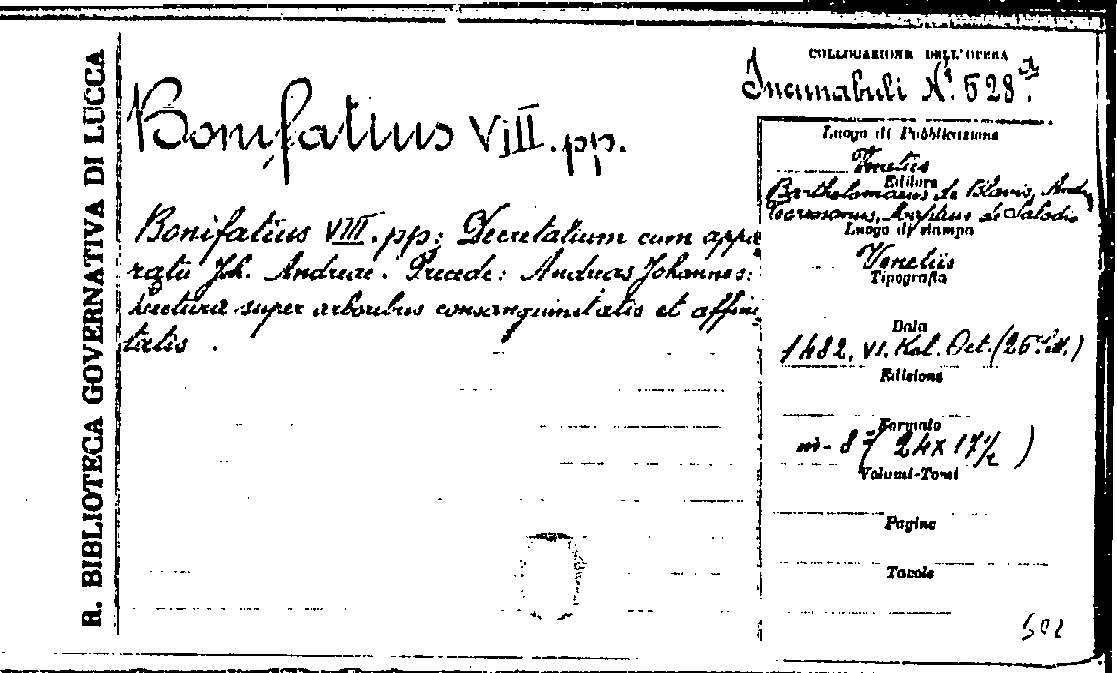 R. BIBLIOTECA GOVERNATIVA DI LUCCA
Bonifatius VIII. pp.
Bonifatius VIII. pp: Decretalium cum appa
ratu Joh. Andreae. Precede: Andreas Johannes:
Lectura super arboribus consanguinitatis et affini
tatis.
COLLOCAZIONE DELL'OPERA
Incunabuli N.º 528.
Luogo di Pubblicazione
Venetiis
Editore
Bartholomaeus de Blavis, Andr.
Torresanus, de Salodio
Luogo di stampa
Venetiis
Tipografia
Data
1482. VI. Kal. Oct. (26 Sett.)
Edizione
Formato
in-8º (24 x 17½)
Volumi-Tomi
Pagine
Tavole
502